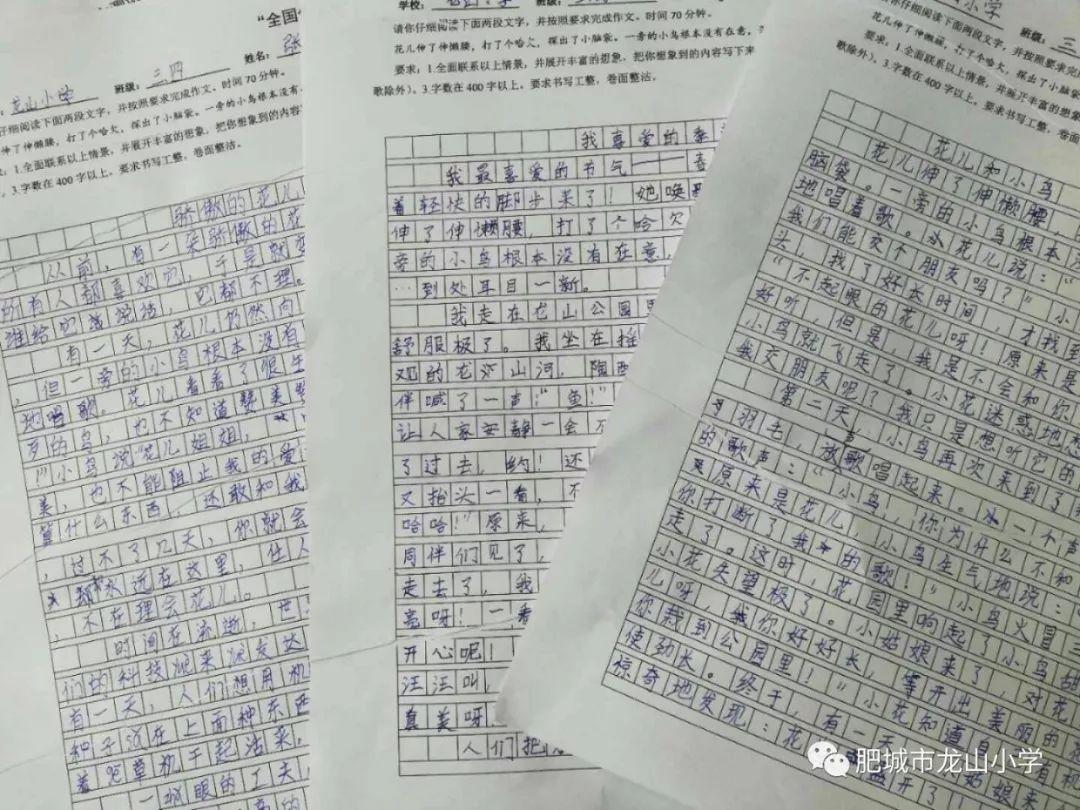 “全国
龙山小学 班级：三四 姓名：张
仔细阅读下面两段文字，并按照要求完成作文。时间70分钟。
伸了伸懒腰，打了个哈欠，探出了小脑袋。一旁的小鸟根本没有
：1.全面联系以上情景，并展开丰富的想象，把你想象到的内容
。3.字数在400字以上，要求书写工整，卷面整洁。
骄傲的花儿
从前，有一朵骄傲的花
所有人都喜欢它，于是就变
谁给它说话，它都不理。
有一天，花儿仍然向
，但一旁的小鸟根本没有
地唱歌。花儿看看了很生
歹的鸟，也不知道赞美
！”小鸟说“花儿姐姐，
美，也不能阻止我的爱
算什么东西，还敢和我
，过不了几天，你就会
永远在这里，住
，不在理会花儿。
时间在流逝，世
们的科技越来越发达
有一天，人们想用机
种子
机干起活来，
一眨眼的工夫，
学校：
请你仔细阅读下面两段文字，并按照要求完成作文。时间70分钟。
花儿伸了伸懒腰，打了个哈欠，探出了小脑袋。一旁的小鸟根本没有在意，
要求：1.全面联系以上情景，并展开丰富的想象，把你想象到的内容写下来
歌除外）。3.字数在400字以上，要求书写工整，卷面整洁。
我喜爱的季
我最喜爱的节气——春
着轻快的脚步来了！她唤
伸了伸懒腰，打了个哈欠
旁的小鸟根本没有在意，
…到处耳目一新。
我走在龙山公园里
舒服极了。我坐在
观的龙山河，陶
伴喊了一声：“鱼！”
让人家安静一会不
了过去，哟！还
又抬头一看，不
哈哈！”原来，
同伴们见了，
走去了，我
亮呀！一看
开心呢！
汪汪叫，
真美呀
人们把
小学 班级：三
请你仔细阅读下面两段文字，并按照要求完成作文。时间70分
花儿伸了伸懒腰，打了个哈欠，探出了小脑袋。一旁的小鸟根本
要求：1.全面联系以上情景，并展开丰富的想象
歌除外）。3.字数在400字以上，要求书写工整
花儿和小鸟
花儿伸了伸懒腰，
脑袋。一旁的小鸟根本
地唱着歌。小花儿说：“
我们能交个朋友吗？”小
头，找了好长时间，才找到
“不起眼的花儿呀！原来是
好听，但是，我是不会和你
小鸟就飞走了。小花迷惑地想
我交朋友呢？我只是想听它的
第二天，小鸟再次来到了
羽毛，放歌唱起来。小
的歌声：“小鸟，你为什么不和
原来是花儿，小鸟生气地说：
你打断了我的歌！”小鸟火冒三
走了。这时，花园里响起了小鸟甜
小花失望极了。小姑娘来了，对花
儿呀，你好好长，等开出美丽的
你栽到公园里！”小花知道自
使劲长。终于，有一天，
惊奇地发现：花
开了！
肥城市龙山小学